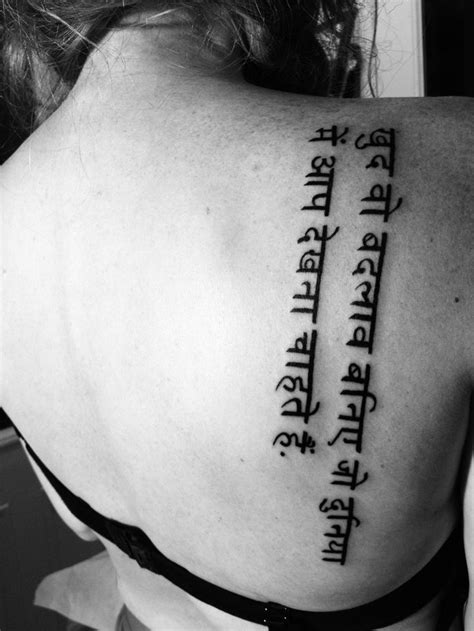 खुद वो बदलाव बनिए जो दुनिया
में आप देखना चाहते हैं.